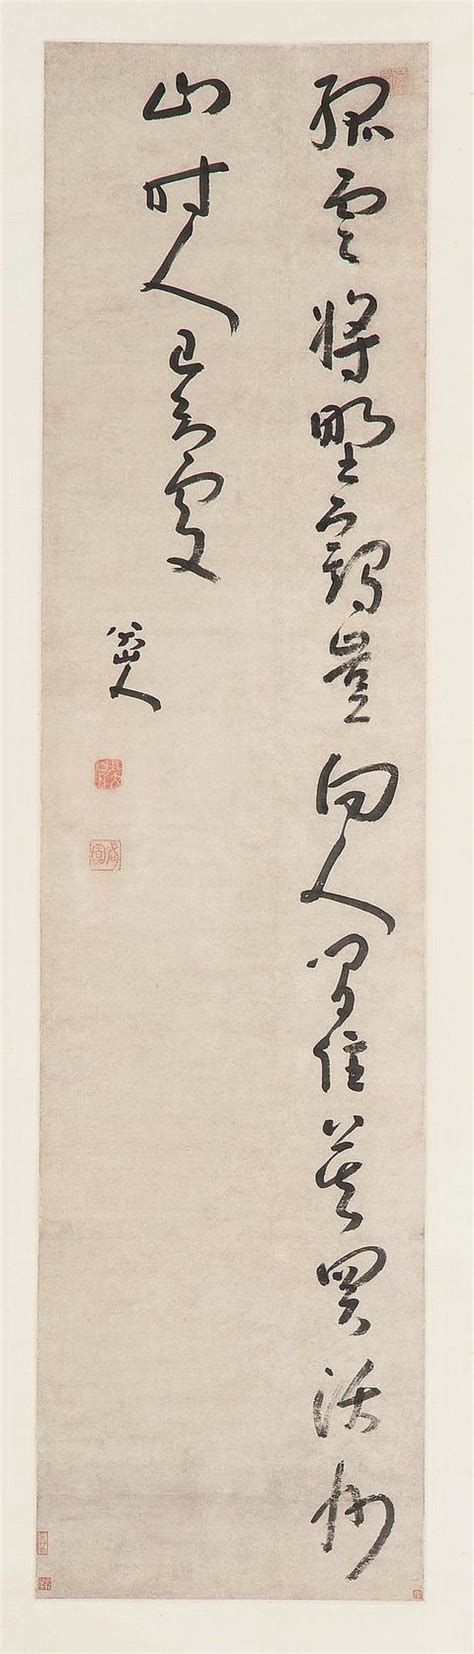 孤雲將野鶴豈向人間住莫買沃州
山時人已知處
八大山人